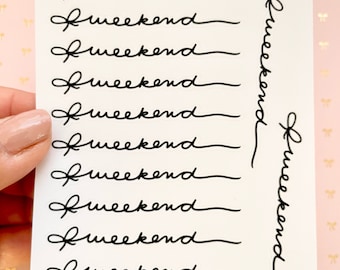 weekend
weekend
weekend
weekend
weekend
weekend
weekend
weekend
weekend
weekend
weekend